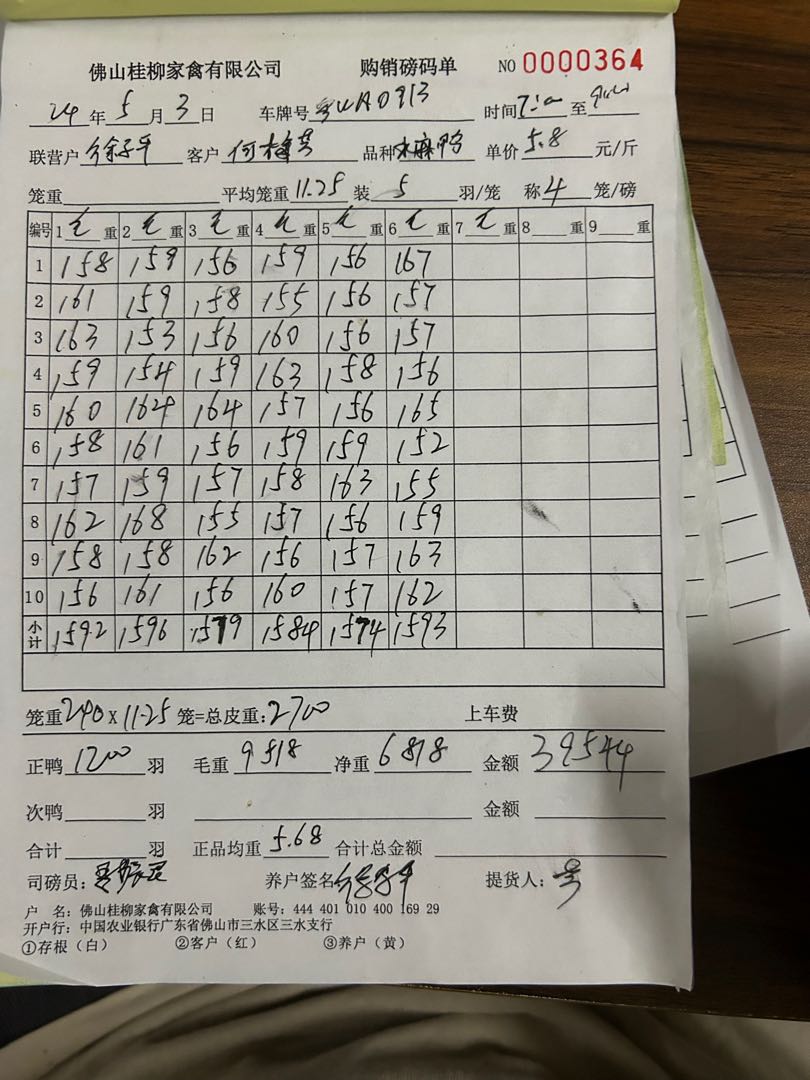 佛山桂柳家禽有限公司 购销磅码单 NO 0000364
24 年 5 月 3 日 车牌号 A0913 时间 至
联营户 徐子平 客户 何 品种 麻鸭 单价 5.8 元/斤
笼重 平均笼重 11.25 装 5 羽/笼 称 4 笼/磅
编号 1 毛 重 2 毛 重 3 毛 重 4 毛 重 5 毛 重 6 毛 重 7 毛 重 8 重 9 重
1 158 159 156 159 156 167
2 161 159 158 155 156 157
3 163 153 156 160 156 157
4 159 154 159 163 158 156
5 160 164 164 157 156 165
6 158 161 156 159 159 152
7 157 159 157 158 163 155
8 162 168 155 157 156 159
9 158 158 162 156 157 163
10 156 161 156 160 157 162
小计 1592 1596 1579 1584 1574 1593
笼重 240 X 11.25 笼=总皮重: 2700 上车费
正鸭 1200 羽 毛重 9518 净重 6818 金额 39544
次鸭 羽 金额
合计 羽 正品均重 5.68 合计总金额
司磅员: 养户签名 徐子平 提货人:
户 名: 佛山桂柳家禽有限公司 账号: 444 401 010 400 169 29
开户行: 中国农业银行广东省佛山市三水区三水支行
①存根（白） ②客户（红） ③养户（黄）